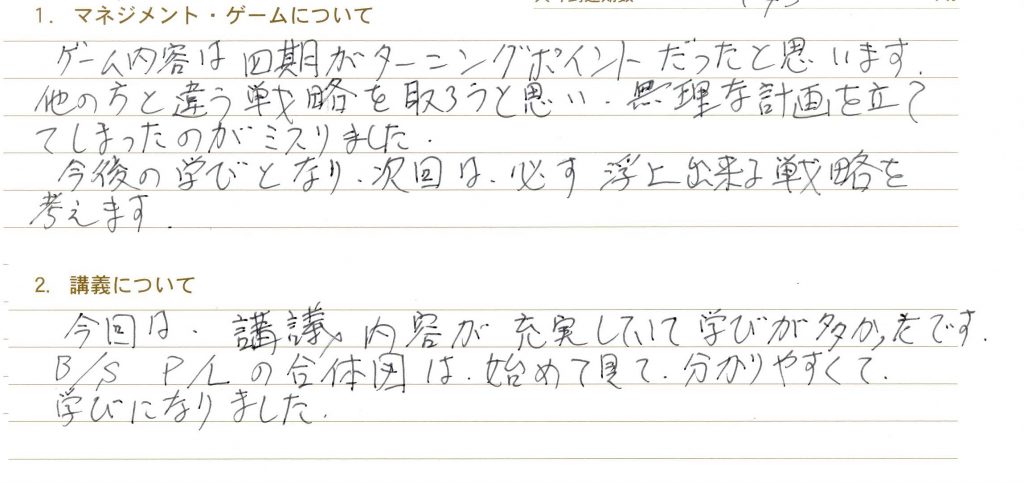 1. マネジメント・ゲームについて
ゲーム内容は四期がターニングポイントだったと思います.
他の方と違う戦略を取ろうと思い.無理な計画を立て
てしまったのがミスりました.
今後の学びとなり.次回は.必す浮上出来る戦略を
考えます.
2. 講義について
今回は.講議内容が充実していて学びが多かったです.
B/S P/Lの合体図は.始めて見て.分かりやすくて.
学びになりました.